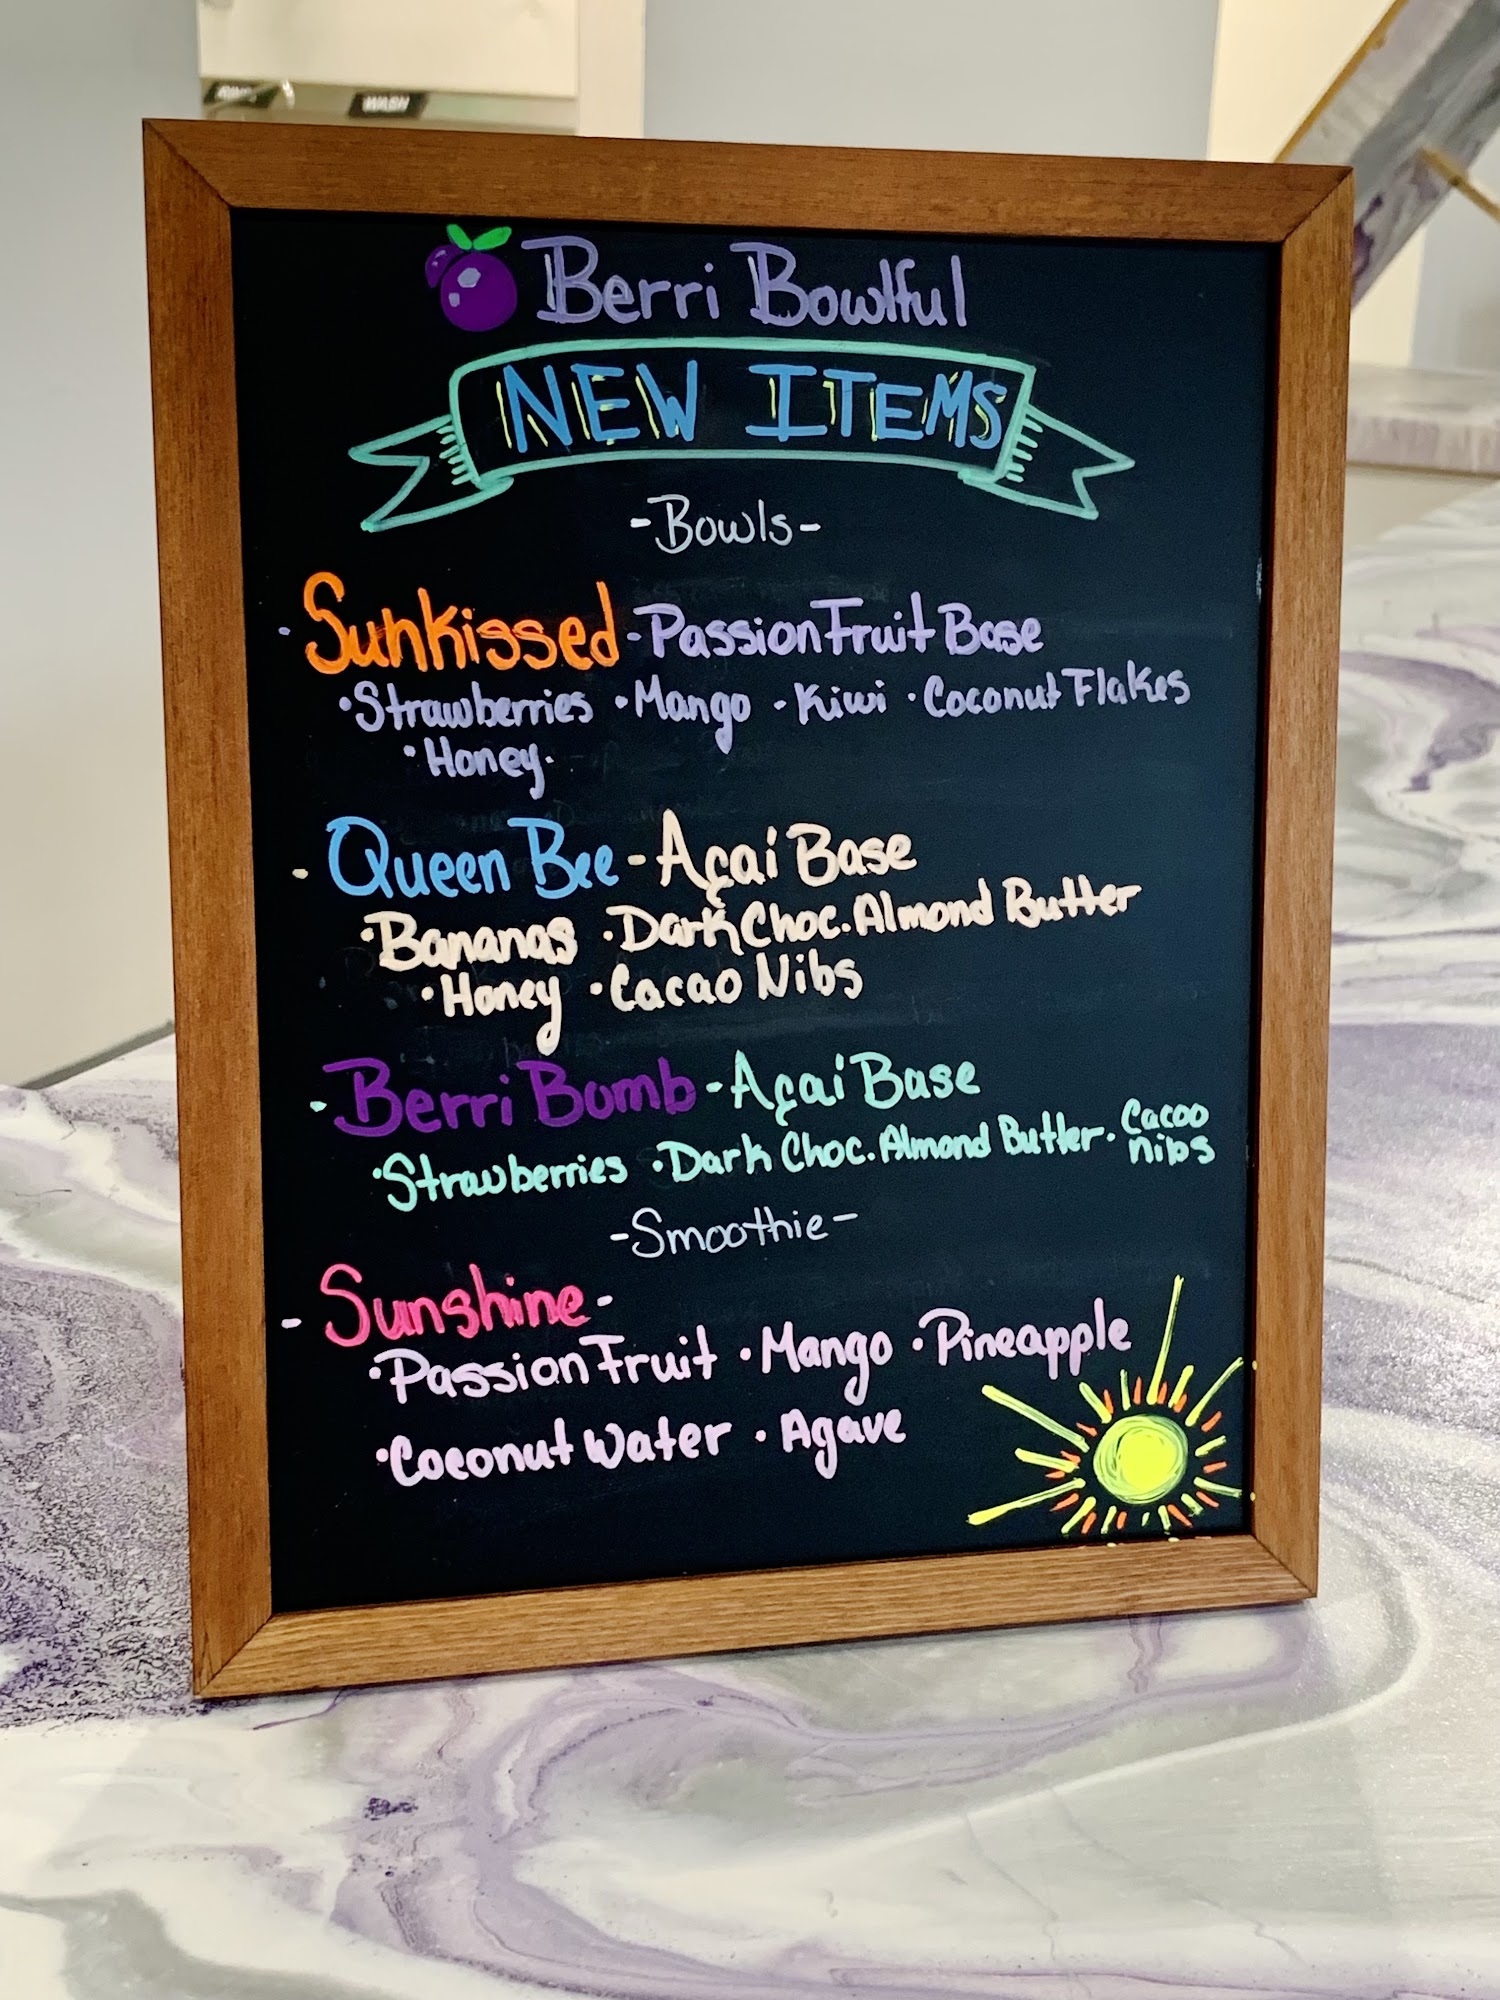 RINSE
WASH
Berri Bowlful
NEW ITEMS
-Bowls-
- Sunkissed - Passion Fruit Base
•Strawberries •Mango •Kiwi •Coconut Flakes
•Honey•
- Queen Bee - Açaí Base
•Bananas •Dark Choc. Almond Butter
•Honey •Cacao Nibs
- Berri Bomb - Açaí Base
•Strawberries •Dark Choc. Almond Butter • Cacao
Nibs
-Smoothie-
- Sunshine -
•Passion Fruit •Mango •Pineapple
•Coconut Water •Agave